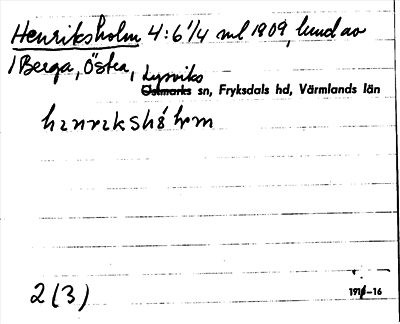 Henriksholm 4:6 1/4 ml 1909, lund av
/ Berga, Östra, Lysviks
Östmarks sn, Fryksdals hd, Värmlands län
hanrikshólm
2 (3)
191 –16